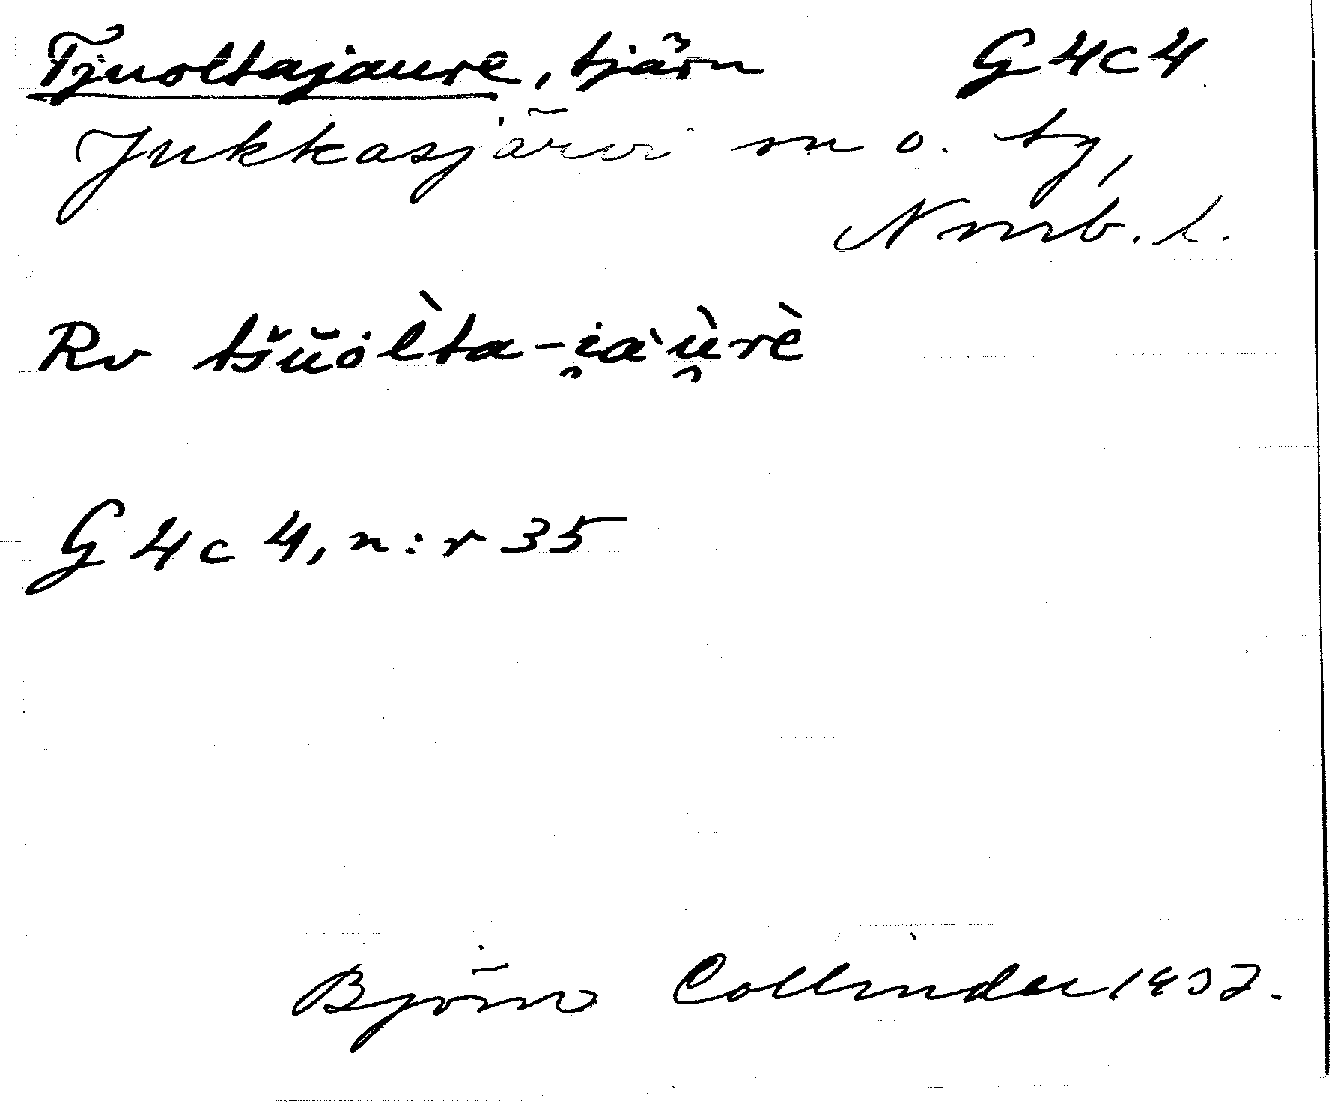 Tjuoltajaure, tjärn G4c4
Jukkasjärvi sn o. by,
Nrrb. l.
Rv tšŭòl̀ta-i̯àù̯rè
G4c4, n:r 35
Björn Collinder 1932.